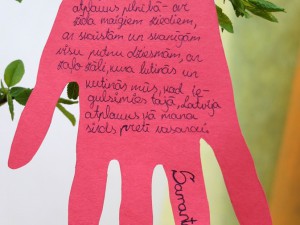 atplaucs pilnībā - ar
zieda maigiem ziediem,
ar skaistām un svarīgām
visu putnu dziesmām, ar
zaļo zāli, kura kutinās un
kutinās mūs, kad ie-
gulsimies tajā, Latvija
atplauks kā mana
sirds pretī vasarai!
Samanta